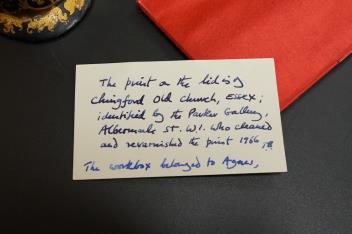 The print on the lid is of
Chingford Old Church, Essex;
identified by the Parker Gallery,
Albermale St. W.1. who cleaned
and revarnished the print 1966
The workbox belonged to Agnes,